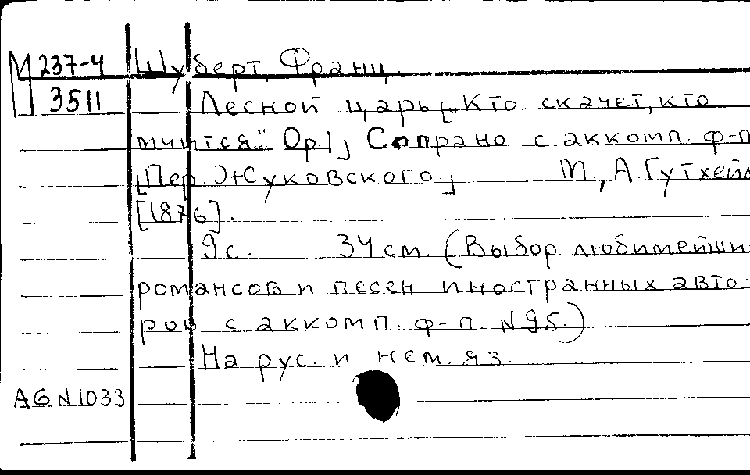 М 237-4 Шуберт, Франц.
3511 Лесной царь [„Кто скачет, кто
мчится." Op 1], Сопрано с аккомп. ф-п
[Пер. Жуковского] М, А. Гутхейл
[1876].
9с. 34см. (Выбор любимейши
романсов и песен иностранных авто-
ров с аккомп. ф-п. N95.)
На рус. и нем. яз.
AG N 1033